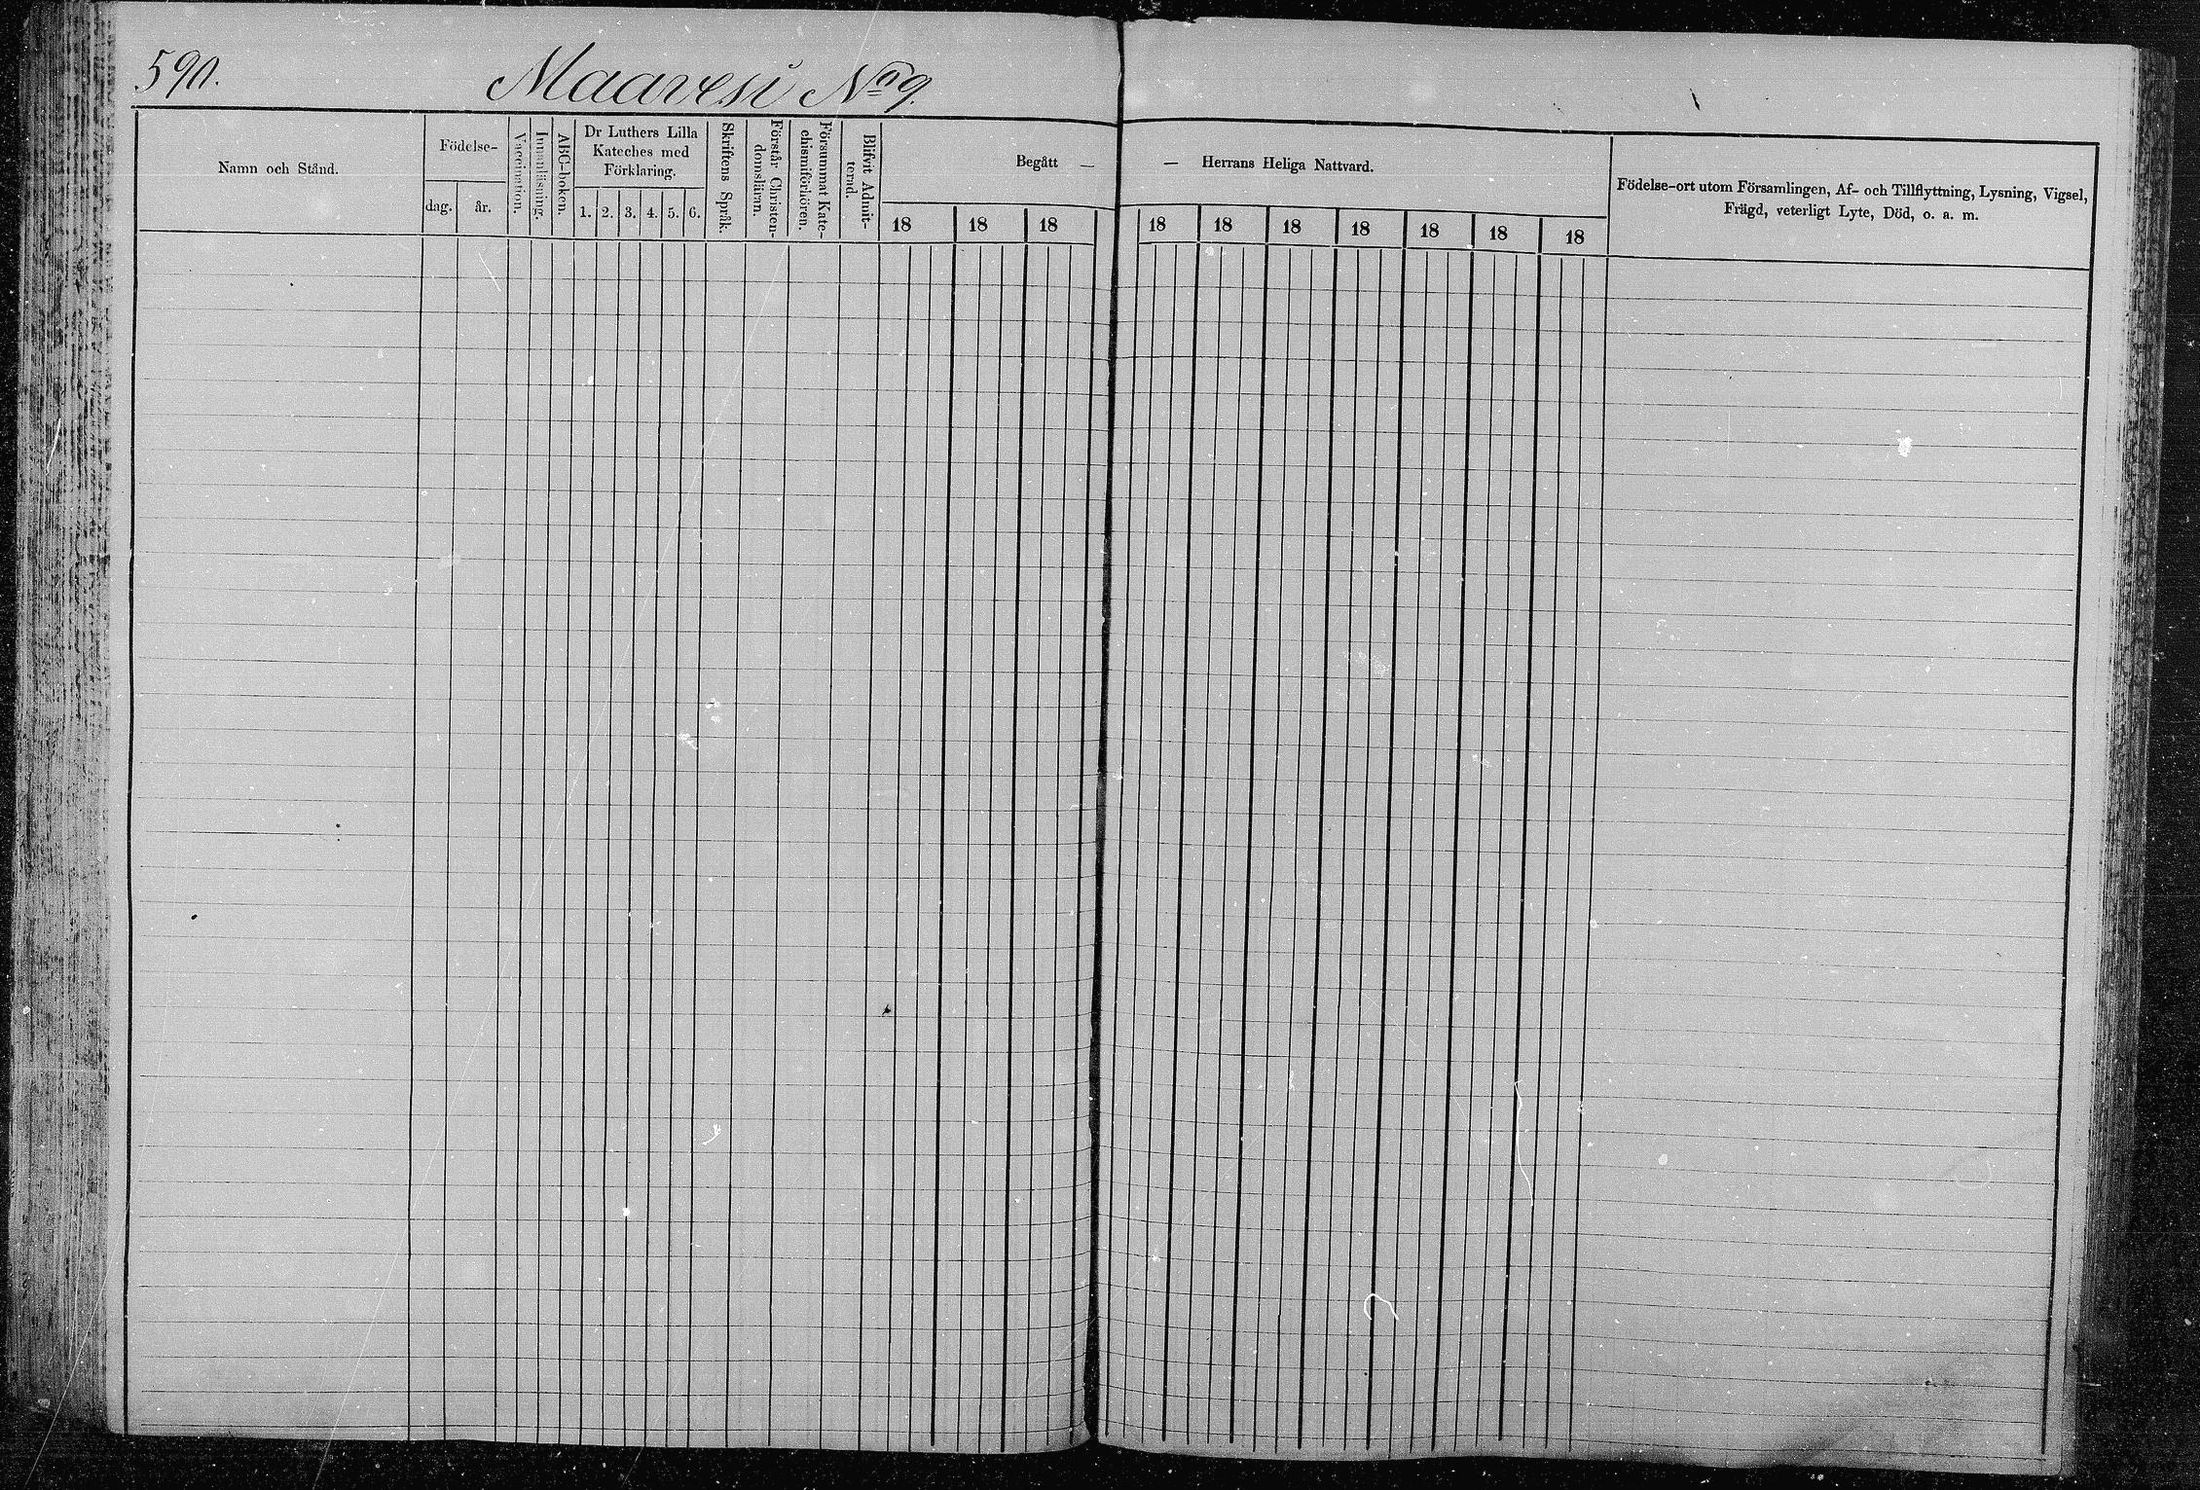 590.
Maavesi No 9.
Namn och Stånd.
Födelse-
dag.
år.
Vaccination.
Innanläsning.
ABC-boken.
Dr Luthers Lilla
Kateches med
Förklaring.
1. 2. 3. 4. 5. 6.
Skriftens Språk.
Förstår Christen-
domsläran.
Försummat Kate-
chismiförhören.
Blifvit Admit-
terad.
Begått — — Herrans Heliga Nattvard.
18 18 18 18 18 18 18 18 18 18
Födelse-ort utom Församlingen, Af- och Tillflyttning, Lysning, Vigsel,
Frägd, veterligt Lyte, Död, o. a. m.